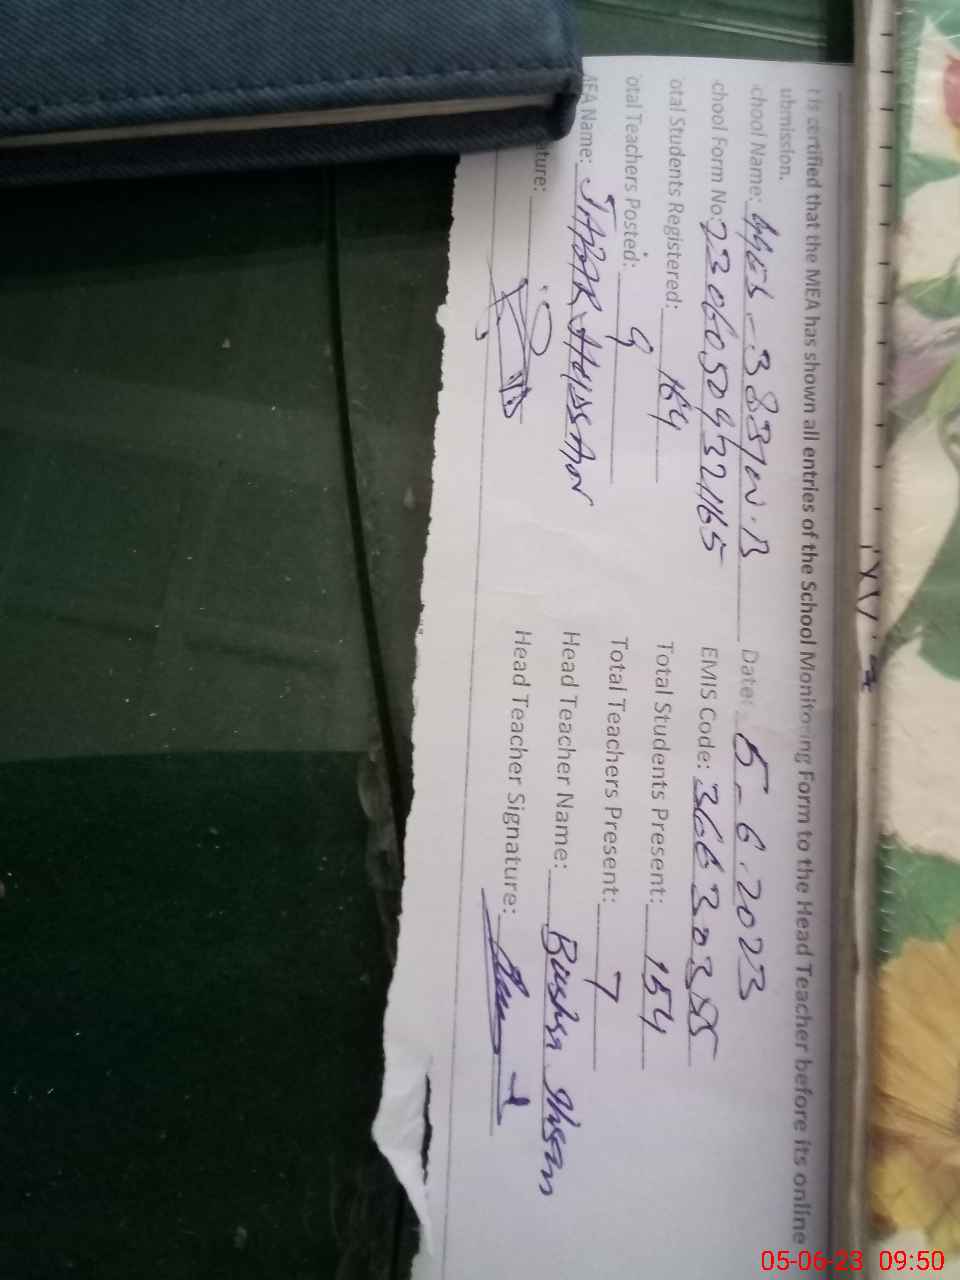 t is certified that the MEA has shown all entries of the School Monitoring Form to the Head Teacher before its online
ubmission.
chool Name: Date: 5-6.2023
chool Form No: 23060509321165 EMIS Code: 36630355
otal Students Registered: 164 Total Students Present: 154
otal Teachers Posted: 9 Total Teachers Present: 7
MEA Name: JABAR HUSSAIN Head Teacher Name: Bushra Ihsan
ature: Head Teacher Signature:
05-06-23 09:50